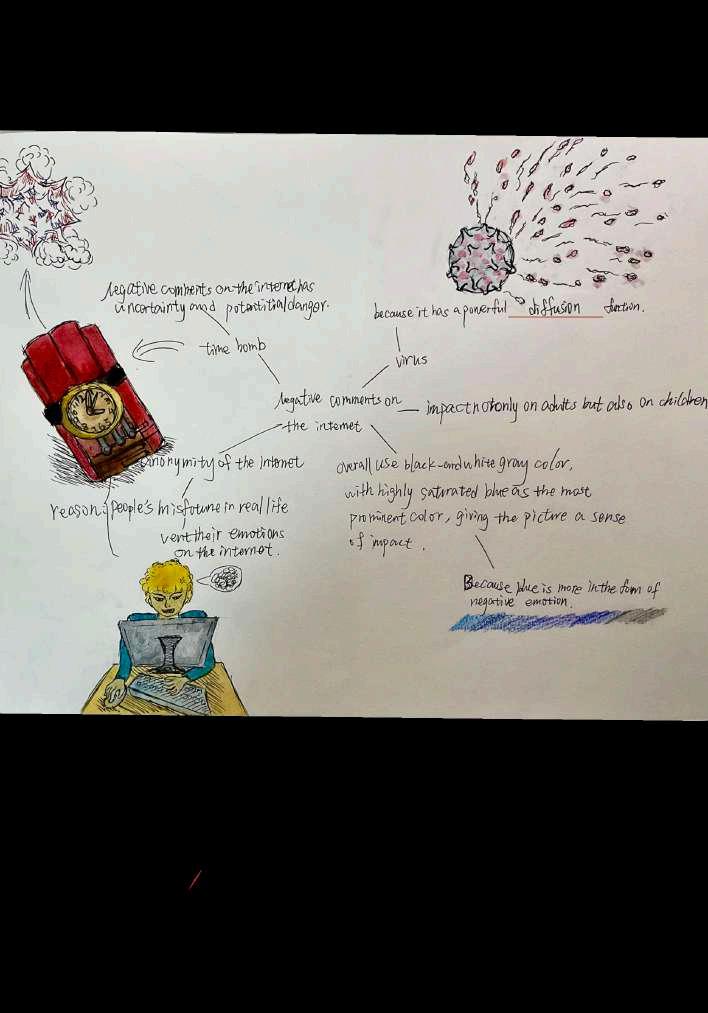 Negative comments on the internet has
uncertainty and potentitial danger.
time bomb
because it has a powerful diffusion function.
virus
Negative comments on
the internet
impact not only on adults but also on children
anonymity of the Internet
reason: people's misfotune in real life
vent their emotions
on the internet.
Overall use black-and-white gray color,
with highly saturated blue as the most
prominent color, giving the picture a sense
of impact.
Because blue is more in the form of
negative emotion.